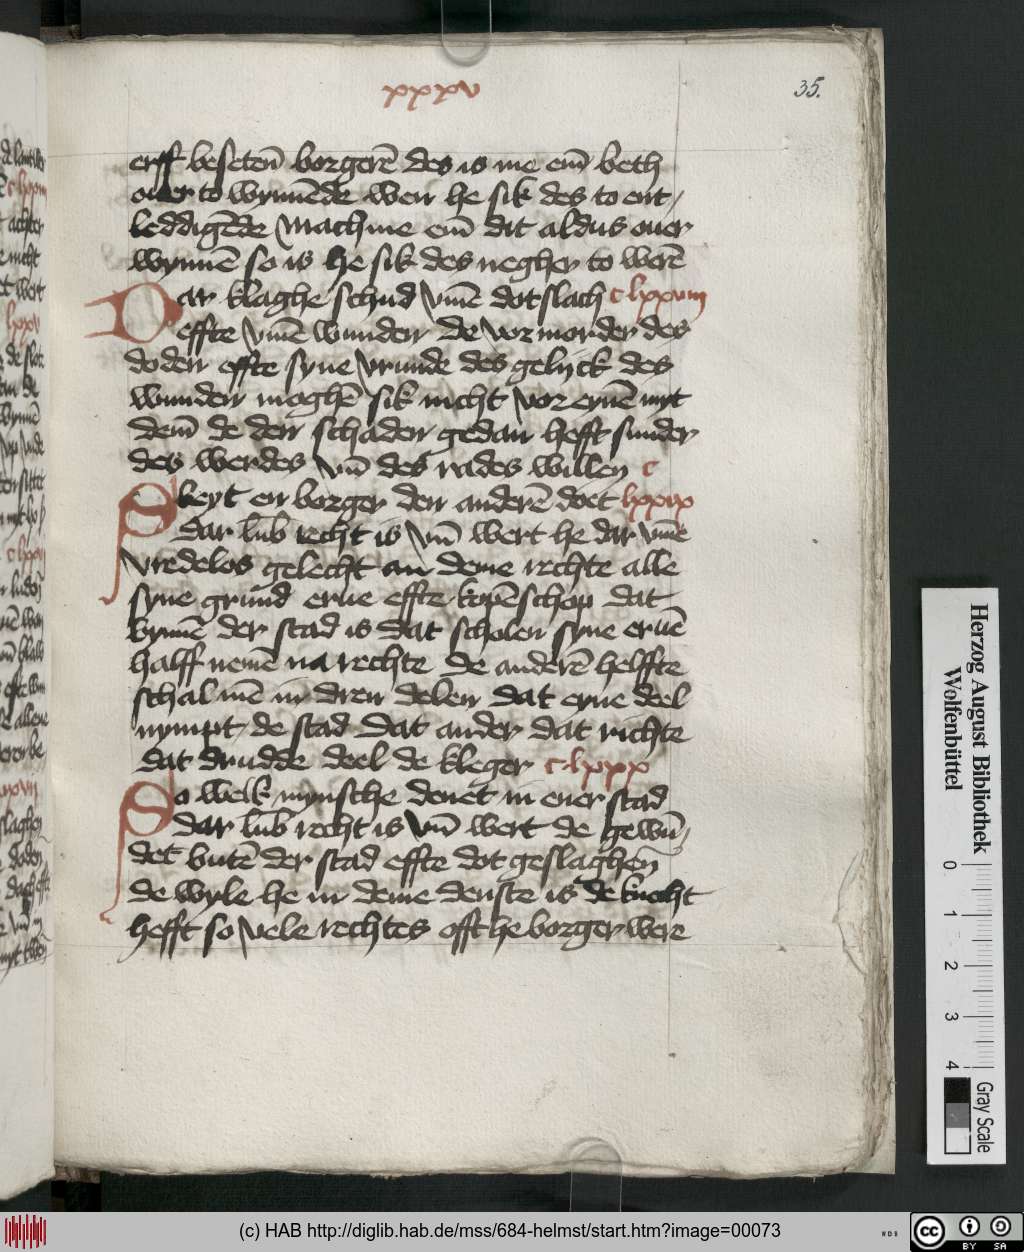 xxxv
35.
erff besetē borgerē des is me em̄ beth
ouer to wynnēde wen he sik des to ent,
leddigēde machme em̄ dit aldus ouer
wynnē so is he sik des negher to werē
Dar klaghe schud vmē dotslach clxxviii
effte vmē wunden de vormorder des
doden effte syne vrunde des gelijck des
wunden moghē sik nicht vor euenē myt
dem̄ de den schaden gedan hefft sunder
des werdes vn̄ des rades willen c
Skeyt en borger den anderē doet lxxix
dar lub recht is vn̄ wert he dar vmē
vredelos gelecht an deme rechte alle
syne grund erue effte kopēschop dat
bynnē der stad is dat scholen syne eruē
halff nemē na rechte de anderē helffte
schal mē in dren delen dat ene deel
nympt de stad dat ander dat richte
dat drudde deel de kleger clxxx
So welk mynsche denet in ener stad
dar lub recht is vn̄ wert de gewū,
det butē der stad effte dot geslaghen
de wyle he in deme denste is de knecht
hefft so vele rechtes offt he borger were
Herzog August Bibliothek
Wolfenbüttel
0 1 2 3 4
Gray Scale
(c) HAB http://diglib.hab.de/mss/684-helmst/start.htm?image=00073
WDB
cc BY SA